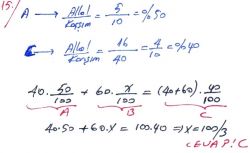 15.
A → Alkol / Karışım = 5/10 = %50
C → Alkol / Karışım = 16/40 = 4/10 = %40
40 . 50/100 + 60 . x/100 = (40+60) . 40/100
A B C
40.50 + 60.x = 100.40 ⇒ x = 100/3
CEVAP: C